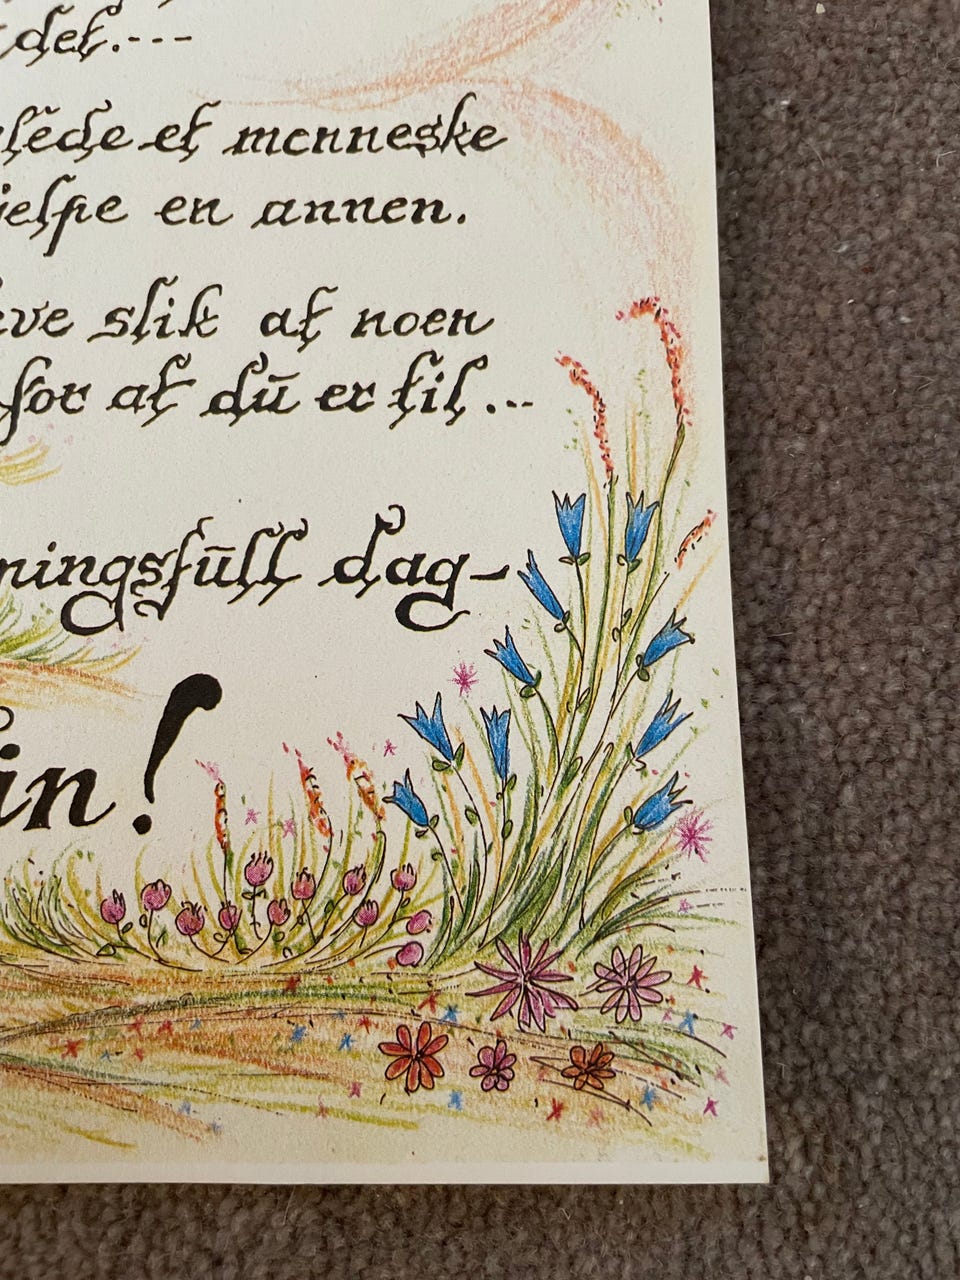 det.---
glede et menneske
jelpe en annen.
eve slik at noen
for at dū er til...
ningsfūll dag-
in!